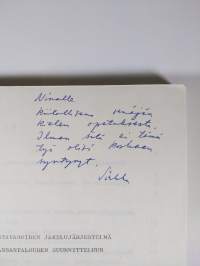 Ninalle
kiitollisena venäjän
kielen opetuksesta
Ilman sitä ei tämä
työ olisi koskaan
syntynyt.
STAVAROIDEN JAKELUJÄRJESTELMÄ
ANSANTALOUDEN SUUNNITTELUN